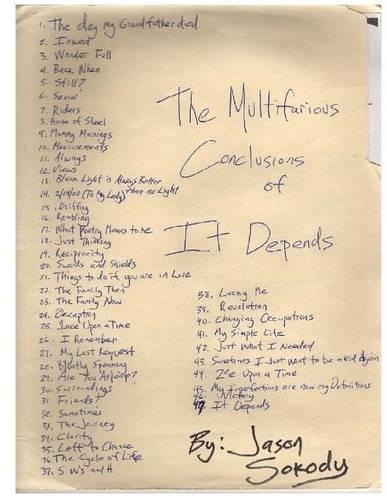 1. The day my Grandfather died
2. Inked
3. Wonder Full
4. Back When
5. Still?
6. Savior
7. Riders
8. Home of Steel
9. Mommy Mornings
10. Measurements
11. Always
12. Views
13. Black Light is Always Better than no Light
14. 2/14/00 (To My Lady)
15. Drifting
16. Rambling
17. What Poetry Means to be
18. Just Thinking
19. Reciprocity
20. Swords and Shields
21. Things to do if you are in Love
22. The Family Then
23. The Family Now
24. Deception
25. Once Upon a Time
26. I Remember
27. My Last Request
28. Bluntly Speaking
29. Are You Asleep?
30. Surroundings
31. Friends?
32. Sometimes
33. The Journey
34. Clarity
35. Left to Chance
36. The Cycle of Life
37. 5 W's and H
The Multifarious
Conclusions
of
It Depends
38. Lucky Me
39. Revelation
40. Changing Occupations
41. My Simple Life
42. Just What I Needed
43. Sometimes I Just want to be a kid Again
44. 2ce Upon a Time
45. My Imperfections are now my Definitions
46. Victory
47. It Depends
By: Jason
Sokody